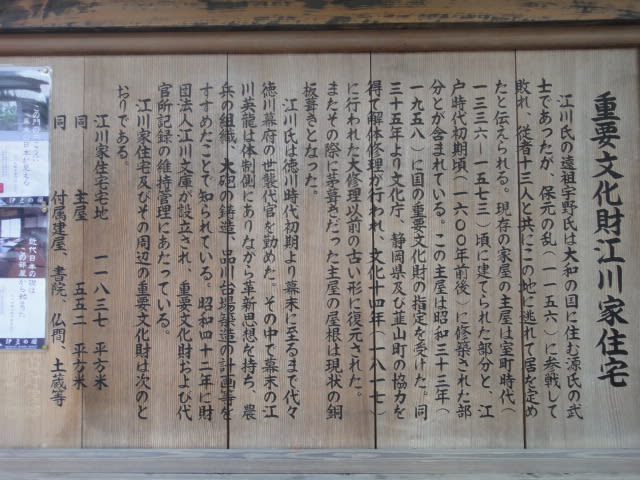 重要文化財江川家住宅
江川氏の遠祖宇野氏は大和の国に住む源氏の武
士であったが、保元の乱(一一五六)に参戦して
敗れ、従者十三人と共にこの地に逃れて居を定め
たと伝えられる。現存の家屋の主屋は室町時代(
一三三六―一五七三)頃に建てられた部分と、江
戸時代初期頃(一六〇〇年前後)に修築された部
分とが含まれている。この主屋は昭和三十三年(
一九五八)に国の重要文化財の指定を受けた。同
三十五年より文化庁、静岡県及び韮山町の協力を
得て解体修理が行われ、文化十四年(一八一七)
に行われた大修理以前の古い形に復元された。
またその際に茅葺きだった主屋の屋根は現状の銅
板葺きとなった。
江川氏は徳川時代初期より幕末に至るまで代々
徳川幕府の世襲代官を勤めた。その中で幕末の江
川英龍は体制側にありながら革新思想を持ち、農
兵の組織、大砲の鋳造、品川台場築造の計画等を
すすめたことで知られている。昭和四十二年に財
団法人江川文庫が設立され、重要文化財および代
官所記録の維持管理にあたっている。
江川家住宅及びその周辺の重要文化財は次のと
おりである。
江川家住宅宅地 一一八三七 平方米
同 主屋 五五二 平方米
同 付属建屋、書院、仏間、土蔵等
この門のむこうに
近代日本の礎は
この部屋から始まった